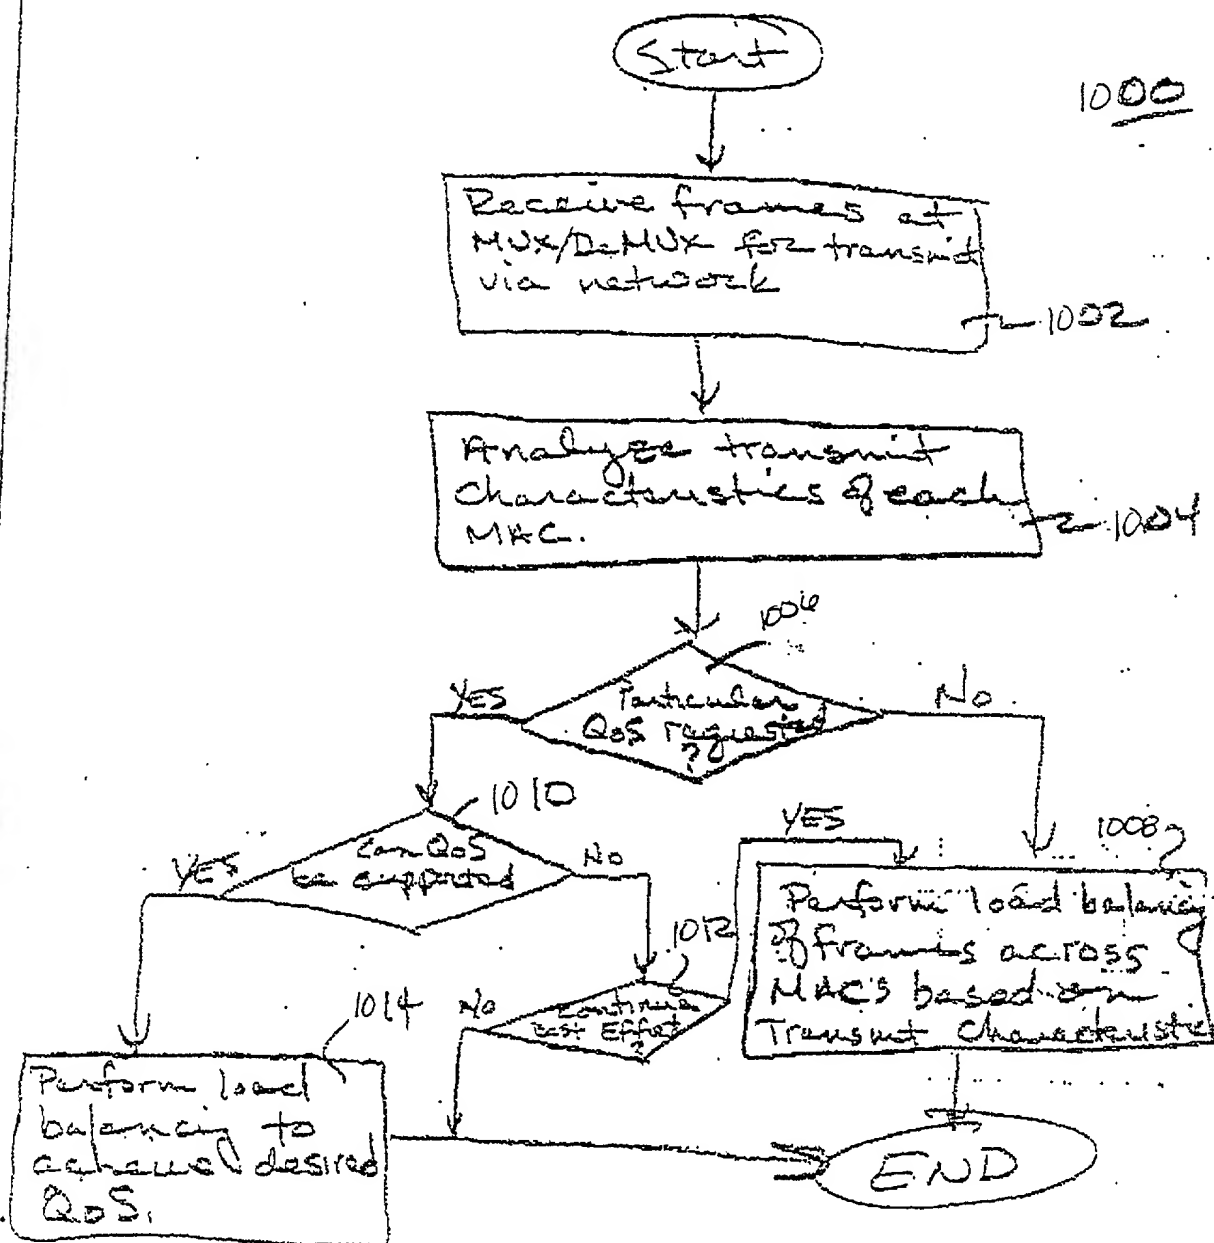 Start
1000
Receive frames at
MUX/DeMUX for transmit
via network
1002
Analyze transmit
characteristics of each
MAC.
1004
1006
YES
Particular
QoS requested
?
No
1010
YES
Can QoS
be supported
No
YES
1008
Perform load balancing
of frames across
MAC's based on
Transmit Characteristic
1012
No
Continue
Best Effort
?
1014
Perform load
balancing to
achieve desired
QoS.
END